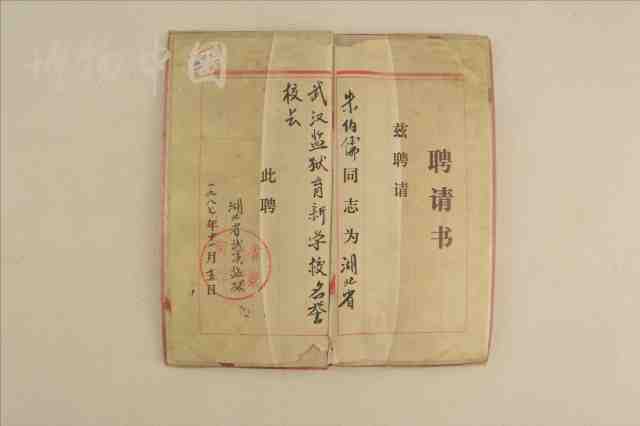 聘请书
兹聘请
朱伯儒同志为湖北省
武汉监狱育新学校名誉
校长
此聘
湖北省武汉监狱
一九八七年十一月五日
博物中国